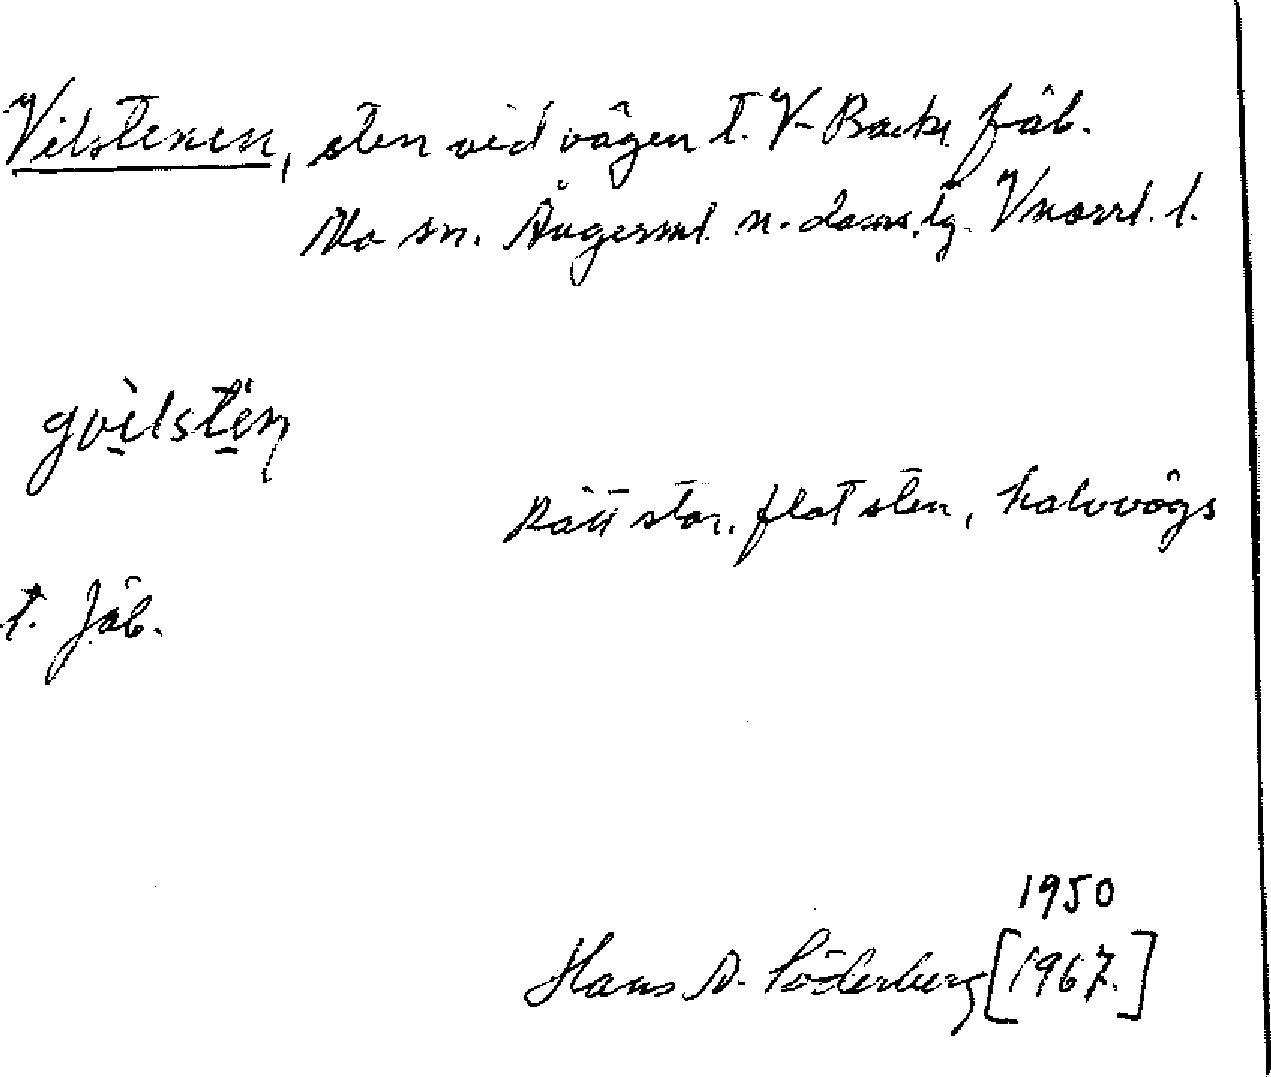 Vilstenen, sten vid vägen t. V-Backe fäb.
Mo sn. Ångerml. n. doms.lg. Vnorrl. l.
gvìlstën
Rätt stor, flat sten, halvvägs
t. fäb.
1950
Hans A. Söderberg [1967.]